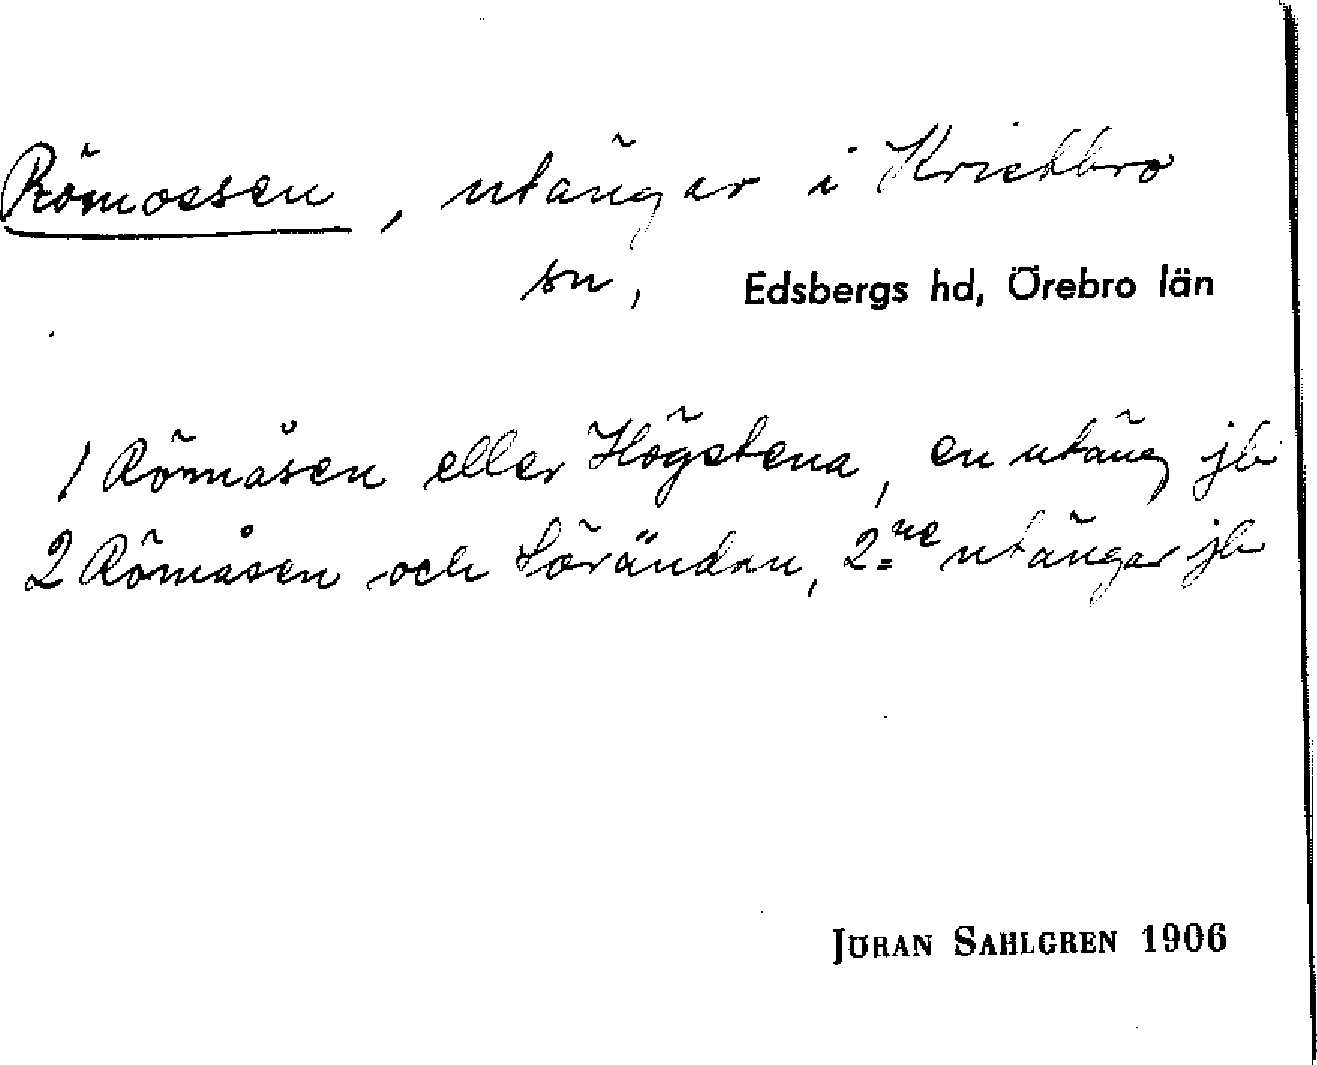 Römossen, utängar i Kristbro
sn, Edsbergs hd, Örebro län
1 Römåsen eller Högstena, en utäng jb
2 Römåsen och Söränden, 2:ne utängar jb
JÖRAN SAHLGREN 1906